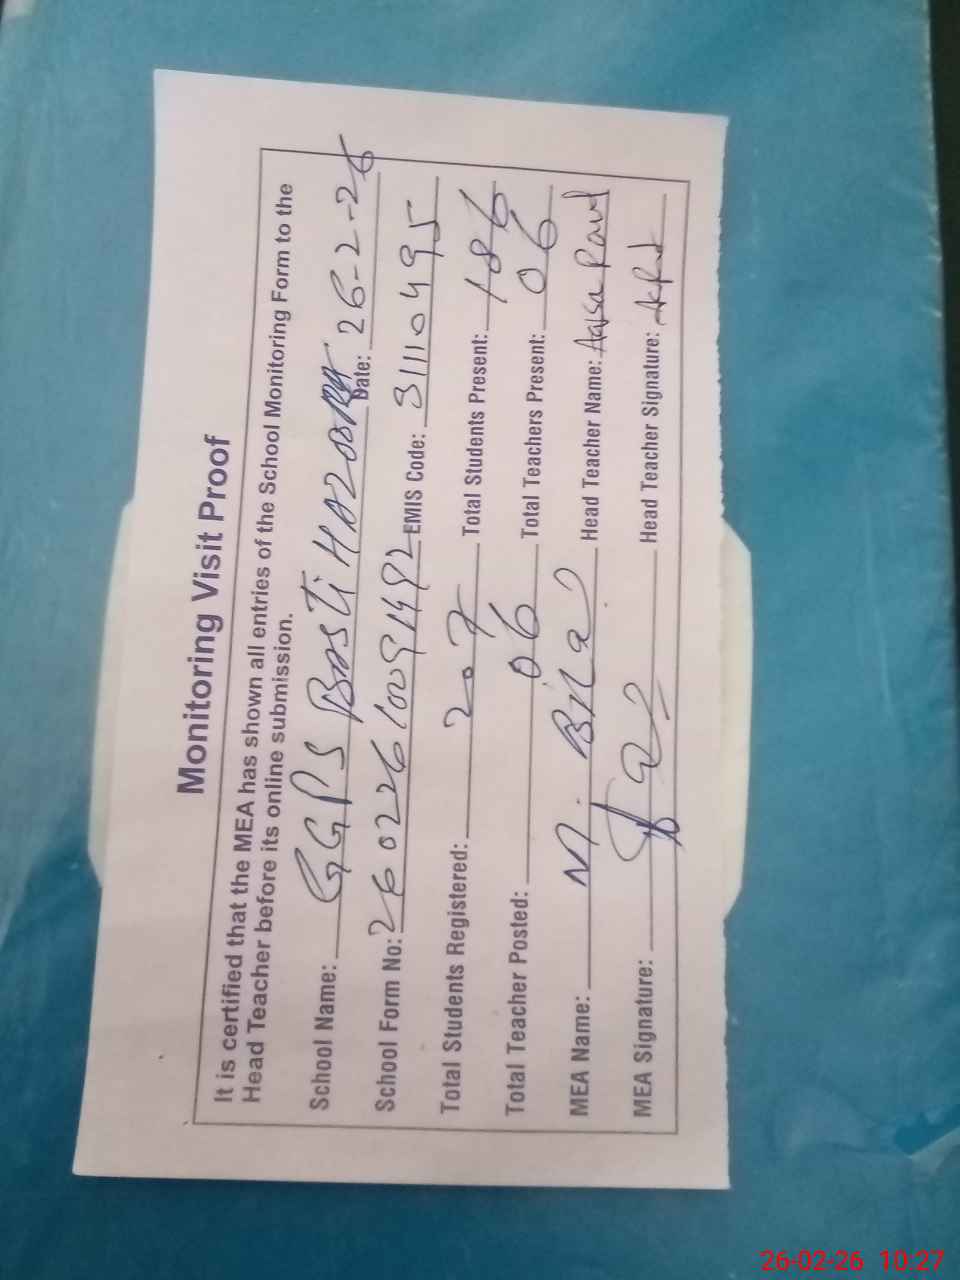 Monitoring Visit Proof
It is certified that the MEA has shown all entries of the School Monitoring Form to the
Head Teacher before its online submission.
School Name: GGPS Basti Date: 26-2-26
School Form No: EMIS Code: 31110495
Total Students Registered: 207 Total Students Present: 186
Total Teacher Posted: 06 Total Teachers Present: 06
MEA Name: M. Bilal Head Teacher Name:
MEA Signature: Head Teacher Signature:
26-02-26 10:27